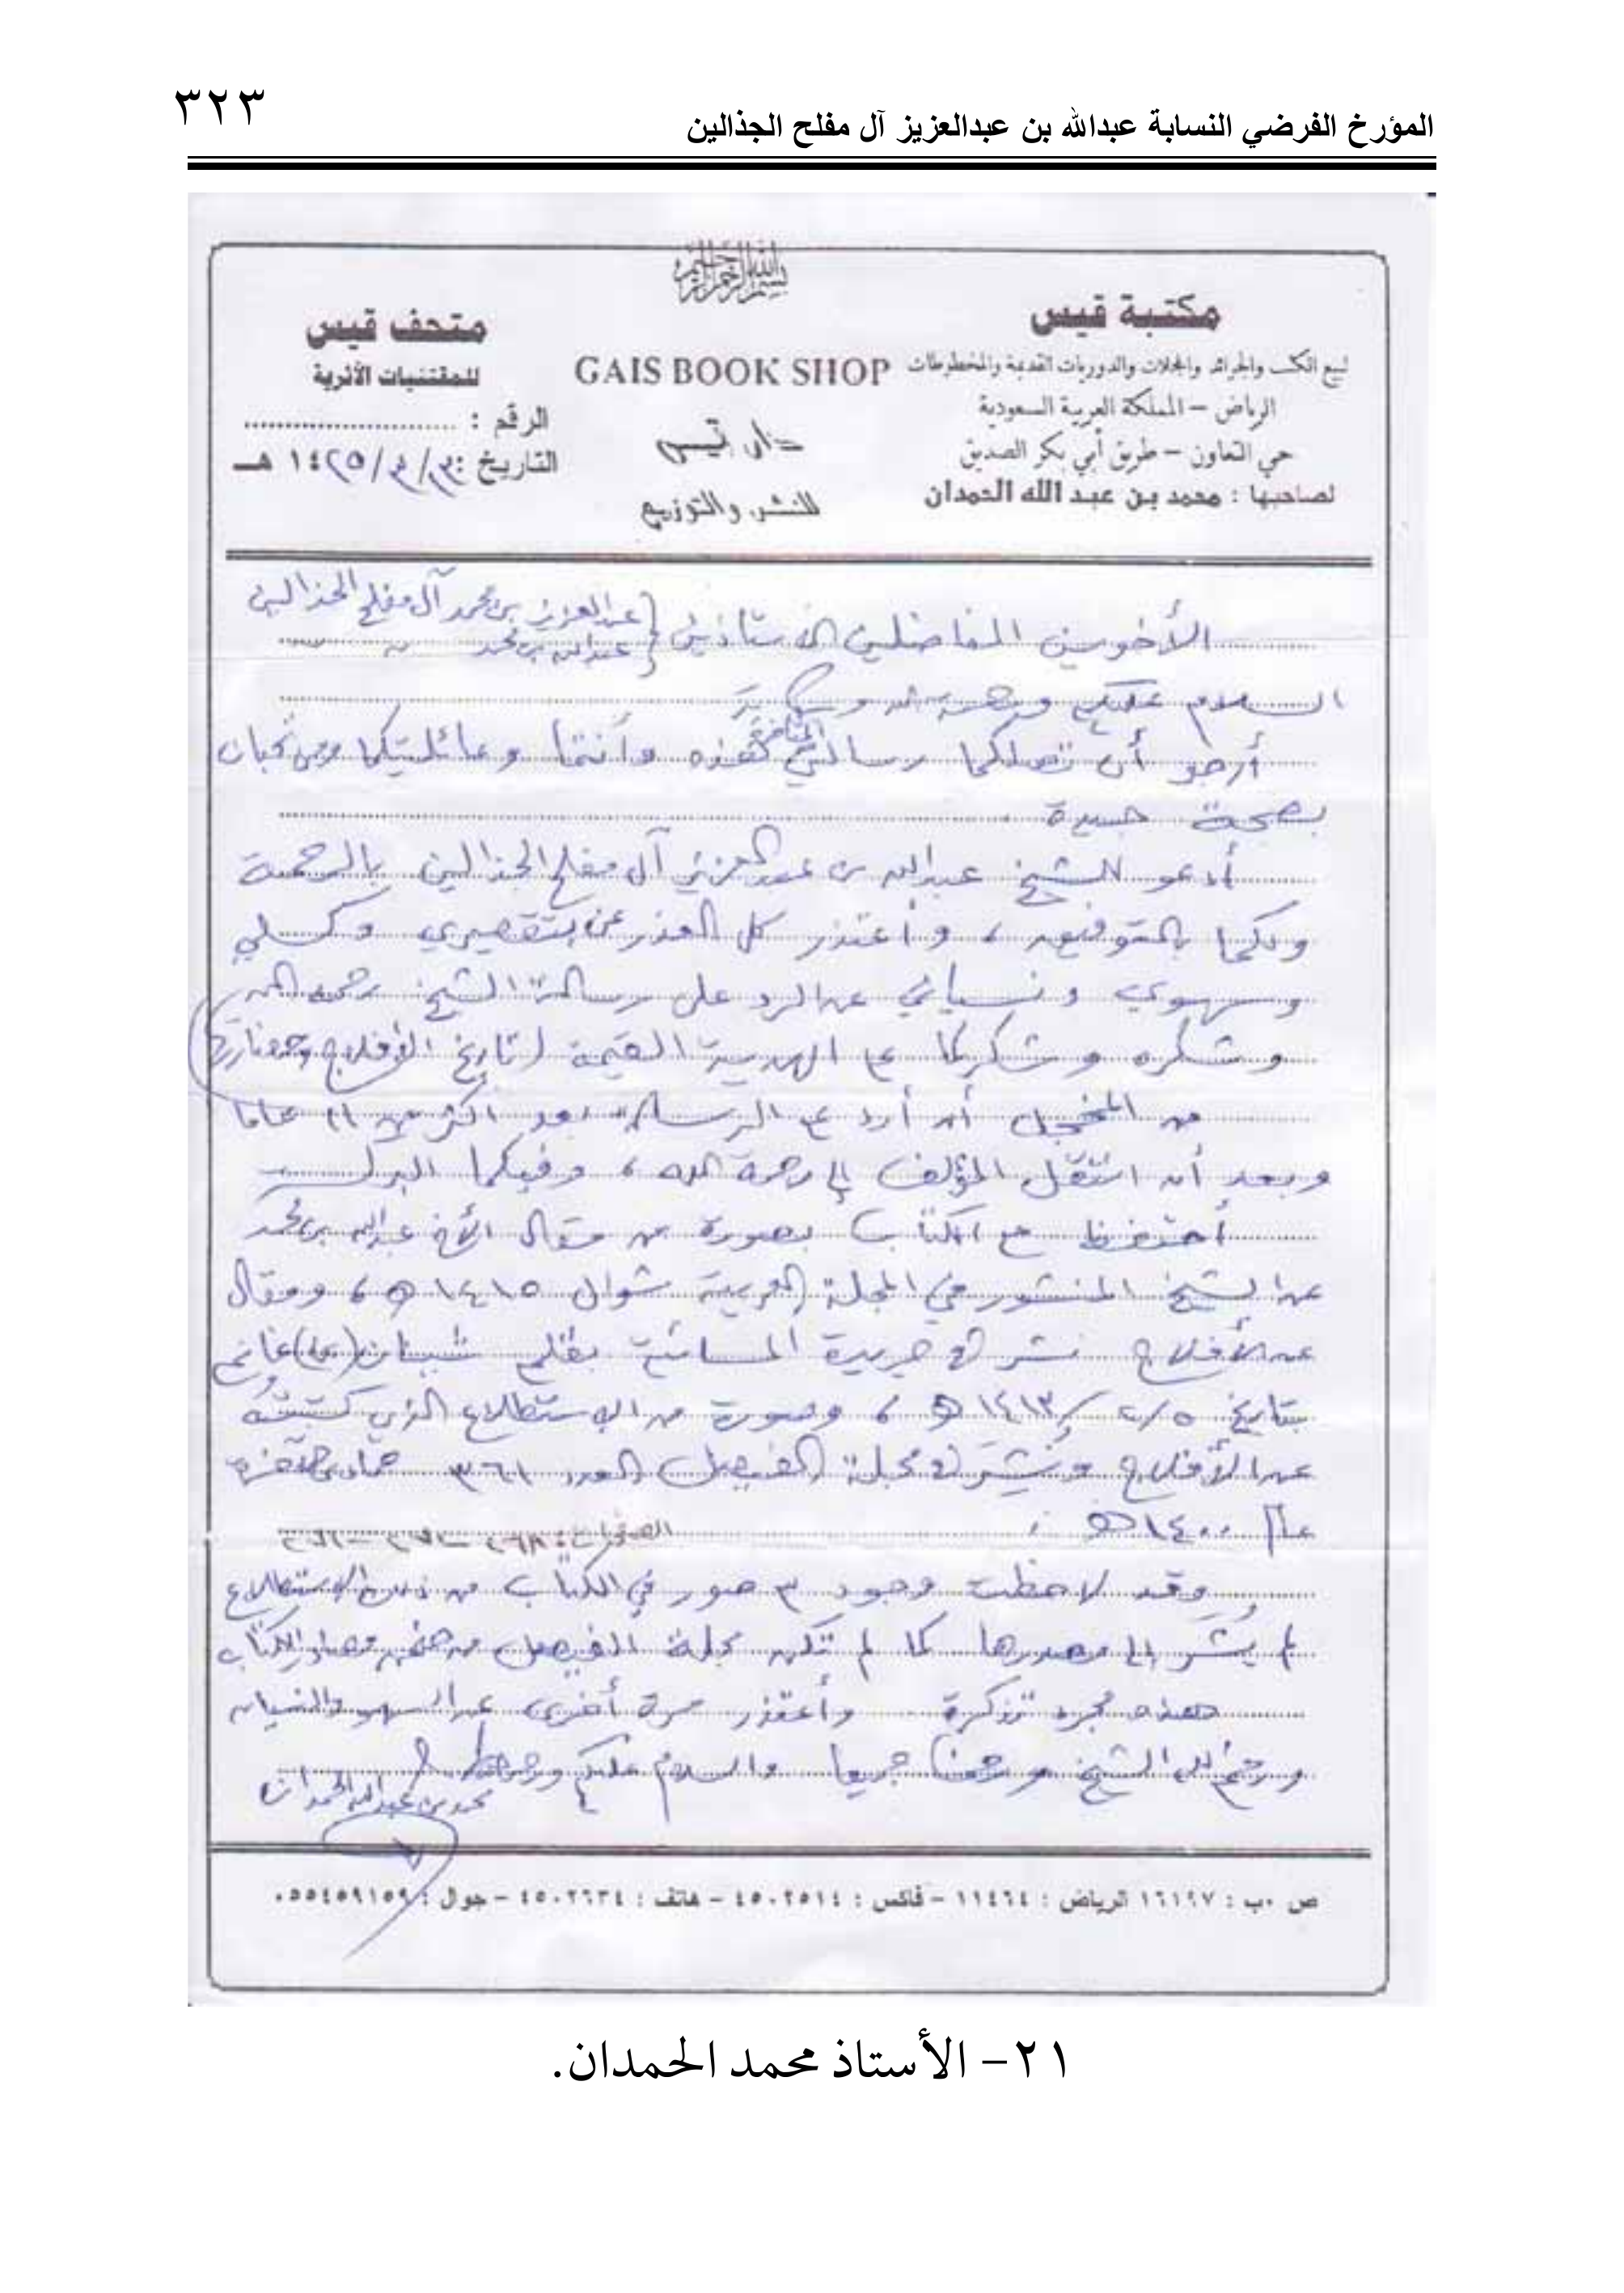 المؤرخ الفرضي النسابة عبدالله بن عبدالعزيز آل مفلح الجذالين
٣٢٣
بسم الله الرحمن الرحيم
مكتبة قيس
لبيع الكتب والجرائد والمجلات والدوريات القديمة والمخطوطات
الرياض – المملكة العربية السعودية
حي التعاون – طريق أبي بكر الصديق
لصاحبها : محمد بن عبد الله الحمدان
GAIS BOOK SHOP
دار قيس
للنشر والتوزيع
متحف قيس
للمقتنيات الأثرية
الرقم :
التاريخ : /٣/١٤٢٥ هـ
الأخوين الفاضلين الأستاذين { عبدالعزيز بن محمد آل مفلح الجذالين
عبدالله بن محمد
السلام عليكم ورحمة الله وبركاته
أرجو أن تصلكما رسالتي المتأخرة هذه وأنتما وعائلتيكما ومن تحبان
بصحة جيدة
أدعو للشيخ عبدالله بن عبدالعزيز آل مفلح الجذالين بالرحمة
ولكما بالتوفيق ، وأعتذر كل العذر عن تقصيري وكسلي
وسهوي ونسياني عن الرد على رسالة الشيخ رحمه الله
وشكره وشكركما على الهدية القيمة (تاريخ الأفلاج وحضارتها)
من المخجل أن أرد على الرسالة بعد أكثر من ١١ عاما
وبعد أن انتقل المؤلف إلى رحمة الله ، وفيكما البركة
أحتفظ مع الكتاب بصورة من مقال الأخ عبدالله بن محمد
عن الشيخ المنشور في المجلة العربية شوال ١٤١٥هـ ، ومقال
عن الأفلاج نشر في جريدة المسائية بقلم غانم
بتاريخ ١٤١٣/٢/٥هـ ، وصورة من الاستطلاع الذي كتبته
عن الأفلاج ونشر في مجلة الفيصل العدد ٣٦ جمادى الآخرة
عام ١٤٠٠هـ
الصفحات: ٢٦٨
وقد لاحظت وجود ٣ صور في الكتاب من ذلك الاستطلاع
لم يُشَر إلى مصدرها كما لم تكن مجلة الفيصل من ضمن مصادر الكتاب
هذه مجرد تذكرة وأعتذر مرة أخرى عن السهو والنسيان
ورحم الله الشيخ ورحمنا جميعا والسلام عليكم ورحمة الله
محمد بن عبدالله الحمدان
ص .ب : ١٦١٩٧ الرياض : ١١٤٦٤ – فاكس : ٤٥٠٢٥١٤ – هاتف : ٤٥٠٢٦٣٤ – جوال : ٠٥٥٤٥٩١٥٩
٢١- الأستاذ محمد الحمدان.